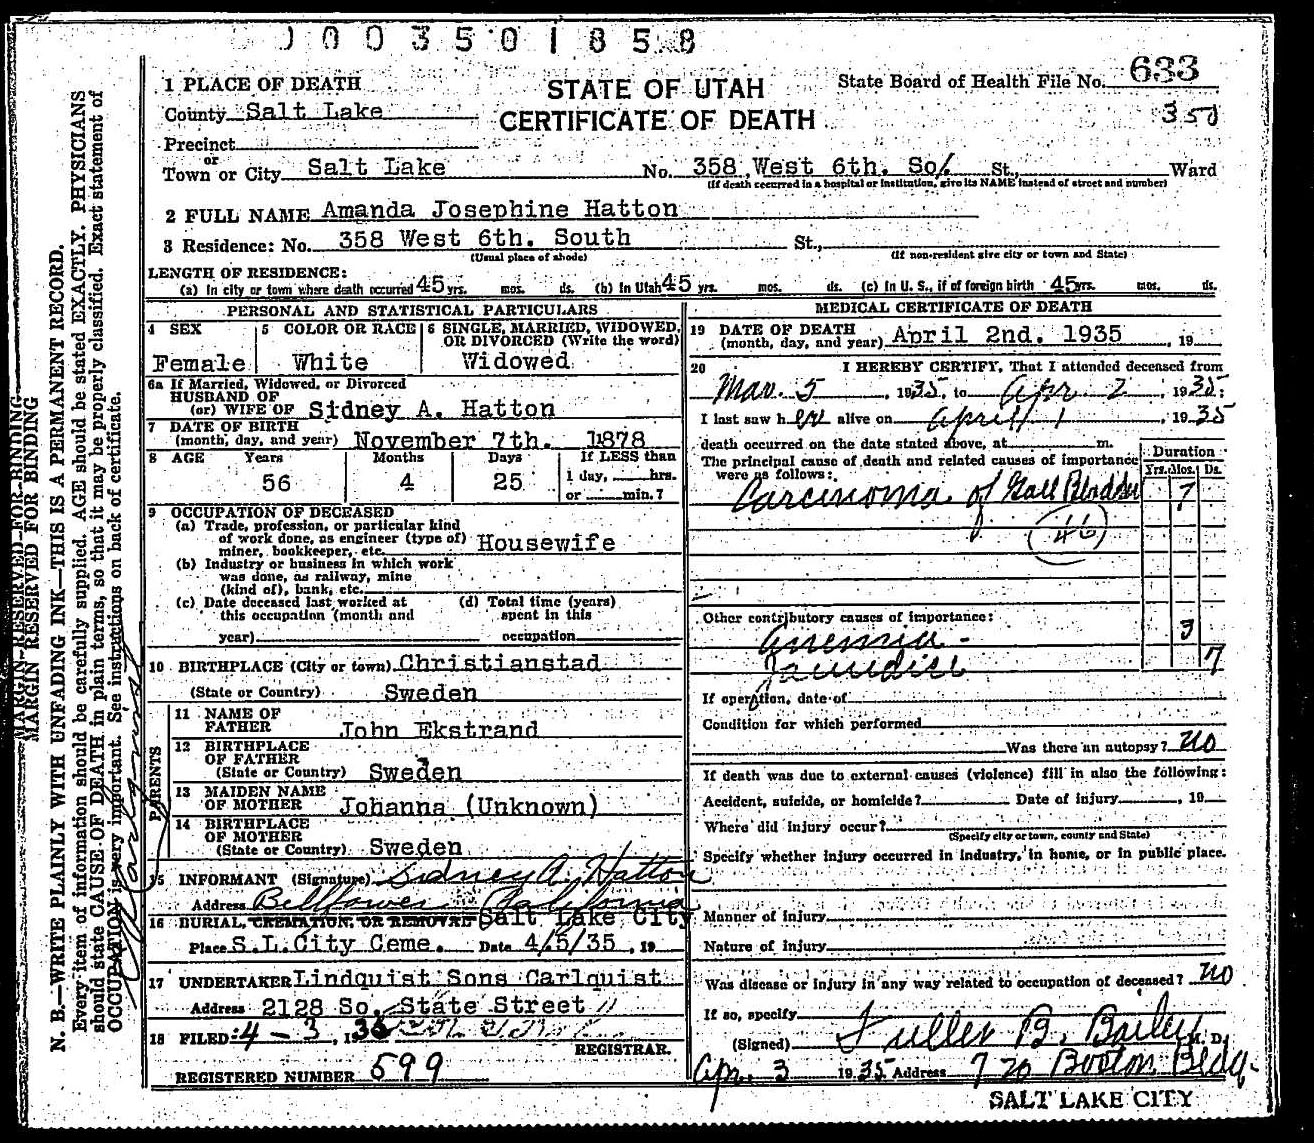 0003501858
1 PLACE OF DEATH
STATE OF UTAH
CERTIFICATE OF DEATH
State Board of Health File No. 633
350
County Salt Lake
Precinct
or
Town or City Salt Lake No. 358 West 6th. So. St., Ward
(If death occurred in a hospital or institution, give its NAME instead of street and number)
2 FULL NAME Amanda Josephine Hatton
3 Residence: No. 358 West 6th. South St.,
(Usual place of abode) (If non-resident give city or town and State)
LENGTH OF RESIDENCE:
(a) In city or town where death occurred 45 yrs. mos. ds. (b) In Utah 45 yrs. mos. ds. (c) In U. S., if of foreign birth 45 yrs. mos. ds.
PERSONAL AND STATISTICAL PARTICULARS
4 SEX
Female
5 COLOR OR RACE
White
6 SINGLE, MARRIED, WIDOWED,
OR DIVORCED (Write the word)
Widowed
6a If Married, Widowed, or Divorced
HUSBAND OF
(or) WIFE OF Sidney A. Hatton
7 DATE OF BIRTH
(month, day, and year) November 7th. 1878
8 AGE Years Months Days If LESS than
56 4 25 1 day, hrs.
or min.?
9 OCCUPATION OF DECEASED
(a) Trade, profession, or particular kind
of work done, as engineer (type of)
miner, bookkeeper, etc. Housewife
(b) Industry or business in which work
was done, as railway, mine
(kind of), bank, etc.
(c) Date deceased last worked at
this occupation (month and
year)
(d) Total time (years)
spent in this
occupation
10 BIRTHPLACE (City or town) Christianstad
(State or Country) Sweden
PARENTS
11 NAME OF
FATHER John Ekstrand
12 BIRTHPLACE
OF FATHER
(State or Country) Sweden
13 MAIDEN NAME
OF MOTHER Johanna (Unknown)
14 BIRTHPLACE
OF MOTHER
(State or Country) Sweden
15 INFORMANT (Signature) Sidney A. Hatton
Address Bellflower California
16 BURIAL, CREMATION, OR REMOVAL Salt Lake City
Place S.L.City Ceme. Date 4/5/35, 19
17 UNDERTAKER Lindquist Sons Carlquist
Address 2128 So. State Street
18 FILED: 4-3, 1935
REGISTRAR.
REGISTERED NUMBER 599
MEDICAL CERTIFICATE OF DEATH
19 DATE OF DEATH
(month, day, and year) April 2nd. 1935, 19
20 I HEREBY CERTIFY, That I attended deceased from
Mar. 5, 1935, to Apr 2, 1935;
I last saw her alive on April 1, 1935
death occurred on the date stated above, at m.
The principal cause of death and related causes of importance
were as follows:
Duration
Yrs. Mos. Ds.
Carcinoma of Gall Bladder 7
(46)
Other contributory causes of importance:
Anemia - 3
Jaundice 7
If operation, date of
Condition for which performed
Was there an autopsy? no
If death was due to external causes (violence) fill in also the following:
Accident, suicide, or homicide? Date of injury, 19
Where did injury occur?
(Specify city or town, county and State)
Specify whether injury occurred in industry, in home, or in public place.
Manner of Injury
Nature of Injury
Was disease or injury in any way related to occupation of deceased? no
If so, specify
(Signed) Fuller B. Bailey M. D.
Apr. 3 1935 Address 720 Boston Bldg.
SALT LAKE CITY
MARGIN RESERVED FOR BINDING
MARGIN RESERVED FOR BINDING
N. B.—WRITE PLAINLY WITH UNFADING INK—THIS IS A PERMANENT RECORD.
Every item of information should be carefully supplied. AGE should be stated EXACTLY. PHYSICIANS
should state CAUSE OF DEATH in plain terms, so that it may be properly classified. Exact statement of
OCCUPATION is very important. See instructions on back of certificate.